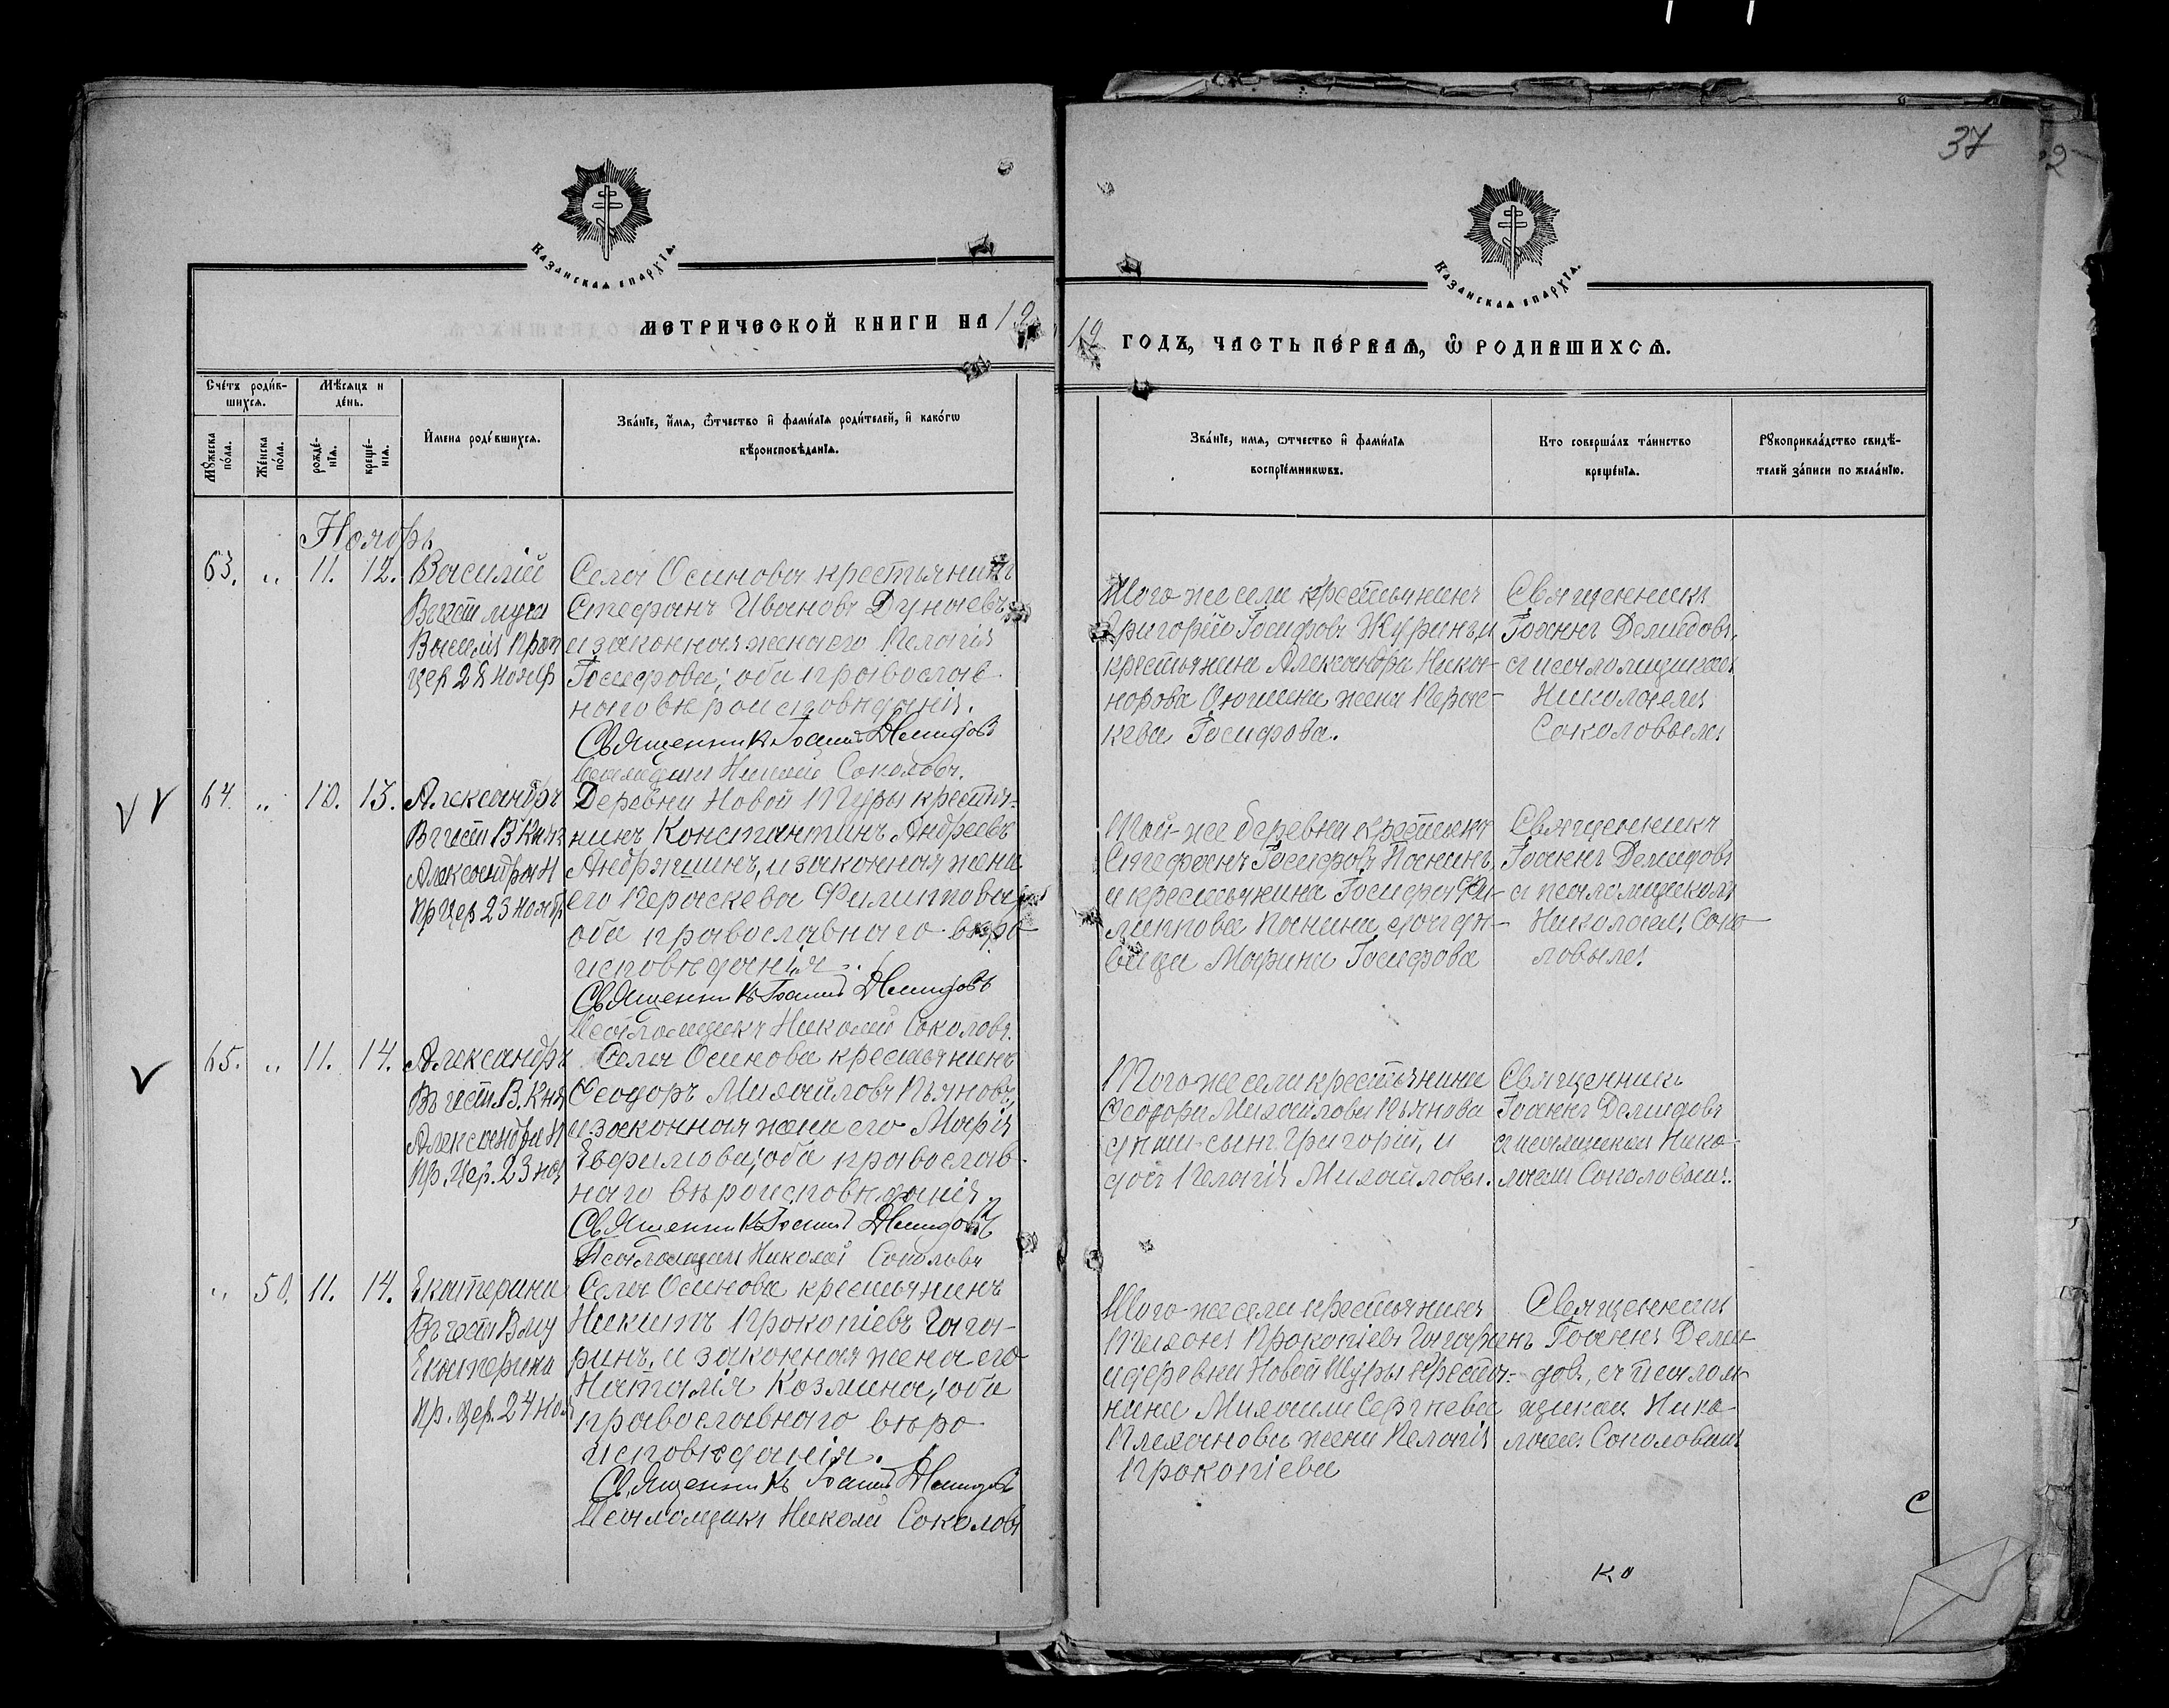 37
2
Казанская епархїя.
Казанская епархїя.
метрической книги на 19
12 годъ, часть пе́рвая, ѿ родившихсѧ.
Сче́тъ роди́в-
шихсѧ.
Мѣ́сѧцъ и
де́нь.
Мꙋ́жеска
по́ла.
Же́нска
по́ла.
рожде́-
нїѧ.
креще́-
нїѧ.
И҆мена роди́вшихсѧ.
Зва́нїе, и҆́мѧ, ѻ҆́тчество и҆ фами́лїѧ роди́телей, и҆ како́гѡ
вѣроисповѣ́данїѧ.
Зва́нїе, имѧ, ѻтчество и҆ фами́лїѧ
воспрїе́мникѡвъ.
Кто соверша́лъ та́инство
креще́нїѧ.
Рꙋкоприкла́дство свидѣ́-
телей за́писи по жела́нїю.
Ноябрь
63. „ 11. 12. Василій
Въ честь муч
Василія Прав
цер 28 Нояб
Села Осинова крестьянинъ
Стефанъ Ивановъ Дунаевъ
и законная жена его Пелагія
Іосифова; оба православ-
наго вѣроисповѣданія.
Священникъ Іоаннъ Демидовъ
Псаломщикъ Николай Соколовъ.
Того-же села крестьянинъ
Григорій Іосифовъ Журинъ и
крестьянина Александра Ника-
норова Анюшина жена Парас-
кева Іосифова.
Священникъ
Іоаннъ Демидовъ,
съ псаломщикомъ
Николаемъ
Соколовымъ
64. „ 10. 13. Александръ
Въ честь В. Княз
Александра Н
Пр Цер 23 Нояб
Деревни Новой Туры крестья-
нинъ Константинъ Андреевъ
Андряшинъ, и законная жена
его Параскева Филиппова;
оба православнаго вѣро-
исповѣданія.
Священникъ Іоаннъ Демидовъ
Псаломщикъ Николай Соколовъ.
Той-же деревни крестьянинъ
Стефанъ Іосифовъ Панинъ,
и крестьянина Іосифа Фи-
липпова Панина, дочь дѣ-
вица Марина Іосифова
Священникъ
Іоаннъ Демидовъ
съ псаломщикомъ
Николаемъ Соко-
ловымъ
65. „ 11. 14. Александръ
Въ честь В. Княз
Александра Н
Пр. Цер. 23 ноя
Села Осинова крестьянинъ
Ѳеодоръ Михайловъ Пьяновъ,
и законная жена его Марія
Евфимова; оба православ-
наго вѣроисповѣданія.
Священникъ Іоаннъ Демидовъ
Псаломщикъ Николай Соколовъ
Того-же села крестьянина
Ѳеодора Михайлова Пьянова
дѣти: сынъ Григорій, и
дочь Пелагія Михайловы.
Священникъ
Іоаннъ Демидовъ
съ псаломщикомъ Нико-
лаемъ Соколовымъ.
„ 50. 11. 14. Екатерина
Въ честь В му
Екатерины
Пр. цер. 24 Ноя
Села Осинова крестьянинъ
Никита Прокопіевъ Гага-
ринъ, и законная жена его
Наталія Козмина; оба
православнаго вѣро-
исповѣданія.
Священникъ Іоаннъ Демидовъ
Псаломщикъ Николай Соколовъ
Того-же села крестьянинъ
Тихонъ Прокопіевъ Гагаринъ
и деревни Новой Туры крестья-
нина Михаила Сергѣева
жена Пелагія
Прокопіева
Священникъ
Іоаннъ Деми-
довъ, съ псалом-
щикомъ Нико-
лаемъ Соколовымъ
с
к о